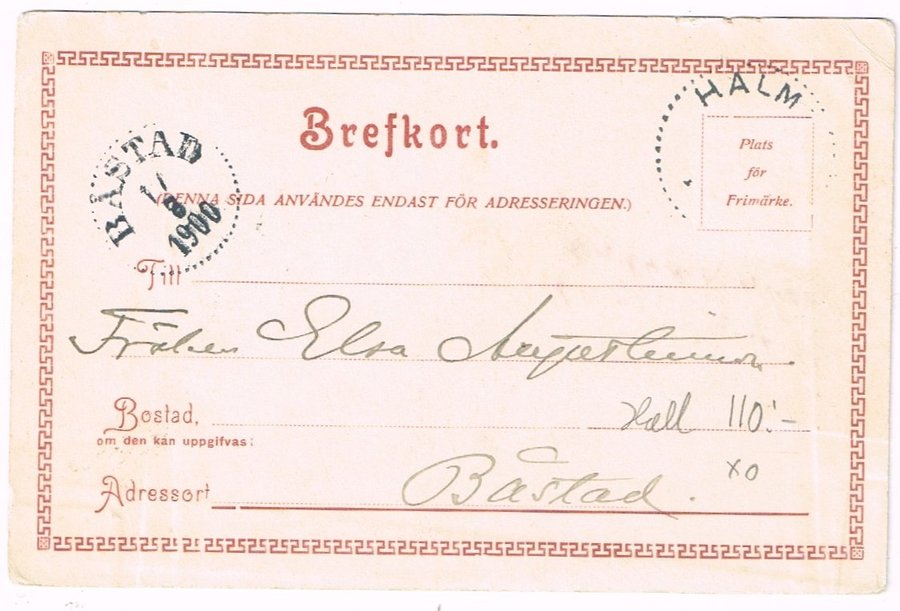 HALM
Brefkort.
BÅSTAD
17
8
1900
Plats
för
Frimärke.
(DENNA SIDA ANVÄNDES ENDAST FÖR ADRESSERINGEN.)
Till
Fröken Elsa
Bostad,
Hall 110:-
om den kan uppgifvas:
xo
Adressort Båstad.